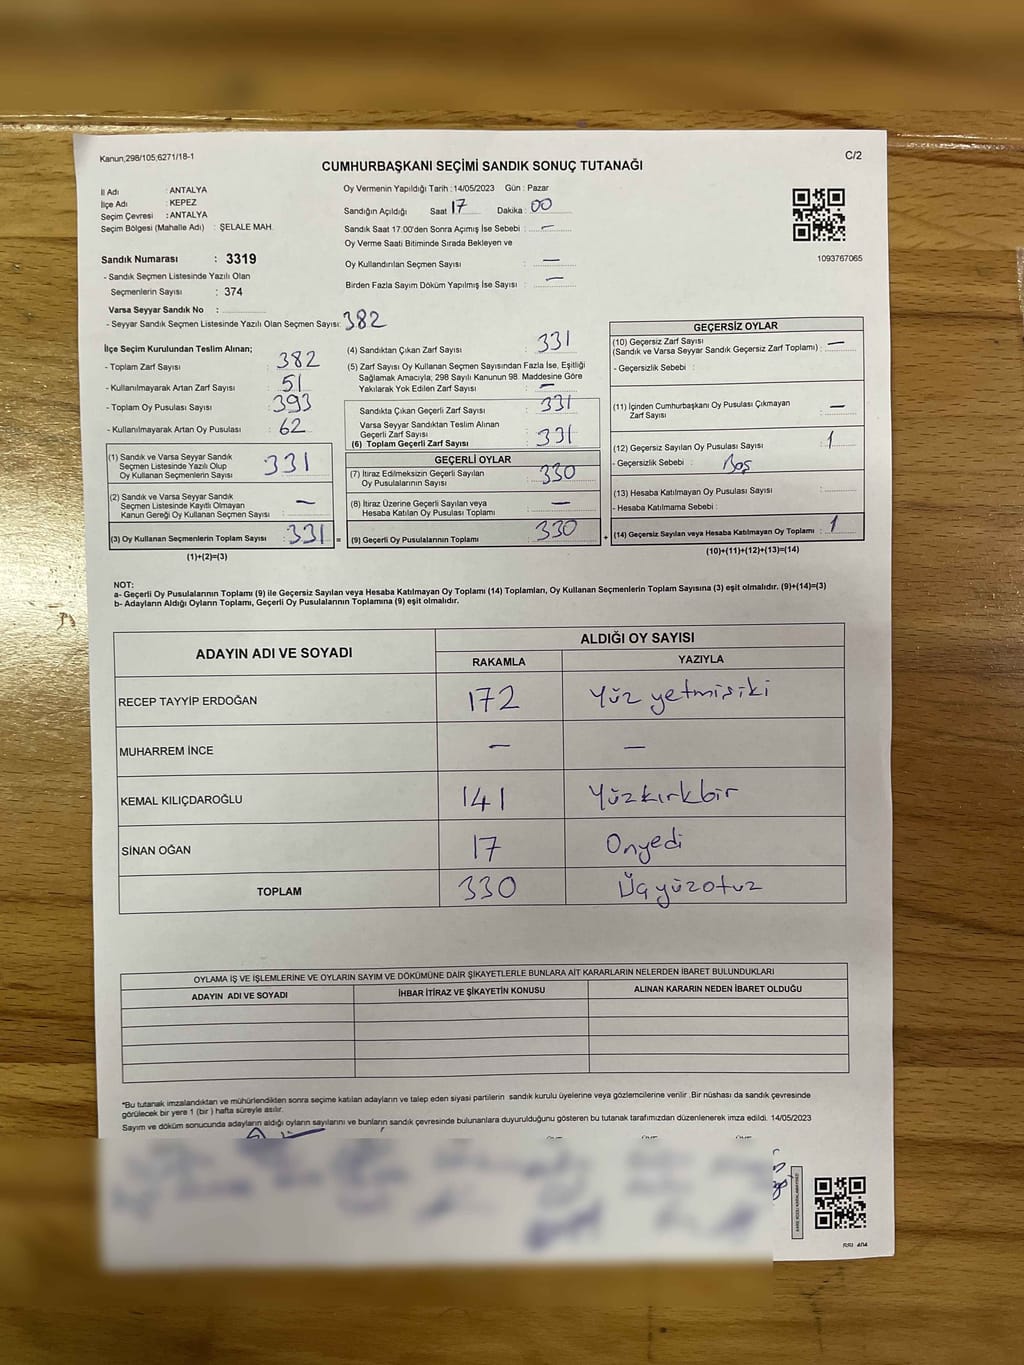 Kanun,298/105,6271/18-1
C/2
CUMHURBAŞKANI SEÇİMİ SANDIK SONUÇ TUTANAĞI
İl Adı : ANTALYA
İlçe Adı : KEPEZ
Seçim Çevresi : ANTALYA
Seçim Bölgesi (Mahalle Adı) : ŞELALE MAH.
Sandık Numarası : 3319
- Sandık Seçmen Listesinde Yazılı Olan
Seçmenlerin Sayısı : 374
Varsa Seyyar Sandık No :
- Seyyar Sandık Seçmen Listesinde Yazılı Olan Seçmen Sayısı: 382
Oy Vermenin Yapıldığı Tarih : 14/05/2023 Gün : Pazar
Sandığın Açıldığı Saat 17 Dakika : 00
Sandık Saat 17:00'den Sonra Açımış İse Sebebi : —
Oy Verme Saati Bitiminde Sırada Bekleyen ve
Oy Kullandırılan Seçmen Sayısı : —
Birden Fazla Sayım Döküm Yapılmış İse Sayısı : —
1093767065
İlçe Seçim Kurulundan Teslim Alınan;
- Toplam Zarf Sayısı : 382
- Kullanılmayarak Artan Zarf Sayısı : 51
- Toplam Oy Pusulası Sayısı : 393
- Kullanılmayarak Artan Oy Pusulası : 62
(1) Sandık ve Varsa Seyyar Sandık
Seçmen Listesinde Yazılı Olup
Oy Kullanan Seçmenlerin Sayısı : 331
(2) Sandık ve Varsa Seyyar Sandık
Seçmen Listesinde Kayıtlı Olmayan
Kanun Gereği Oy Kullanan Seçmen Sayısı : —
(3) Oy Kullanan Seçmenlerin Toplam Sayısı : 331 =
(1)+(2)=(3)
(4) Sandıktan Çıkan Zarf Sayısı : 331
(5) Zarf Sayısı Oy Kullanan Seçmen Sayısından Fazla İse, Eşitliği
Sağlamak Amacıyla; 298 Sayılı Kanunun 98. Maddesine Göre
Yakılarak Yok Edilen Zarf Sayısı : —
Sandıkta Çıkan Geçerli Zarf Sayısı : 331
Varsa Seyyar Sandıktan Teslim Alınan
Geçerli Zarf Sayısı
(6) Toplam Geçerli Zarf Sayısı : 331
GEÇERLİ OYLAR
(7) İtiraz Edilmeksizin Geçerli Sayılan
Oy Pusulalarının Sayısı : 330
(8) İtiraz Üzerine Geçerli Sayılan veya
Hesaba Katılan Oy Pusulası Toplamı : —
(9) Geçerli Oy Pusulalarının Toplamı : 330 +
GEÇERSİZ OYLAR
(10) Geçersiz Zarf Sayısı
(Sandık ve Varsa Seyyar Sandık Geçersiz Zarf Toplamı) : —
- Geçersizlik Sebebi :
(11) İçinden Cumhurbaşkanı Oy Pusulası Çıkmayan
Zarf Sayısı : —
(12) Geçersiz Sayılan Oy Pusulası Sayısı : 1
- Geçersizlik Sebebi : Boş
(13) Hesaba Katılmayan Oy Pusulası Sayısı :
- Hesaba Katılmama Sebebi :
(14) Geçersiz Sayılan veya Hesaba Katılmayan Oy Toplamı : 1
(10)+(11)+(12)+(13)=(14)
NOT:
a- Geçerli Oy Pusulalarının Toplamı (9) ile Geçersiz Sayılan veya Hesaba Katılmayan Oy Toplamı (14) Toplamları, Oy Kullanan Seçmenlerin Toplam Sayısına (3) eşit olmalıdır. (9)+(14)=(3)
b- Adayların Aldığı Oyların Toplamı, Geçerli Oy Pusulalarının Toplamına (9) eşit olmalıdır.
ADAYIN ADI VE SOYADI
ALDIĞI OY SAYISI
RAKAMLA YAZIYLA
RECEP TAYYİP ERDOĞAN 172 Yüz yetmişiki
MUHARREM İNCE — —
KEMAL KILIÇDAROĞLU 141 Yüzkırkbir
SİNAN OĞAN 17 Onyedi
TOPLAM 330 Üçyüzotuz
OYLAMA İŞ VE İŞLEMLERİNE VE OYLARIN SAYIM VE DÖKÜMÜNE DAİR ŞİKAYETLERLE BUNLARA AİT KARARLARIN NELERDEN İBARET BULUNDUKLARI
ADAYIN ADI VE SOYADI İHBAR İTİRAZ VE ŞİKAYETİN KONUSU ALINAN KARARIN NEDEN İBARET OLDUĞU
*Bu tutanak imzalandıktan ve mühürlendikten sonra seçime katılan adayların ve talep eden siyasi partilerin sandık kurulu üyelerine veya gözlemcilerine verilir .Bir nüshası da sandık çevresinde
görülecek bir yere 1 (bir ) hafta süreyle asılır.
Sayım ve döküm sonucunda adayların aldığı oyların sayılarını ve bunların sandık çevresinde bulunanlara duyurulduğunu gösteren bu tutanak tarafımızdan düzenlenerek imza edildi. 14/05/2023